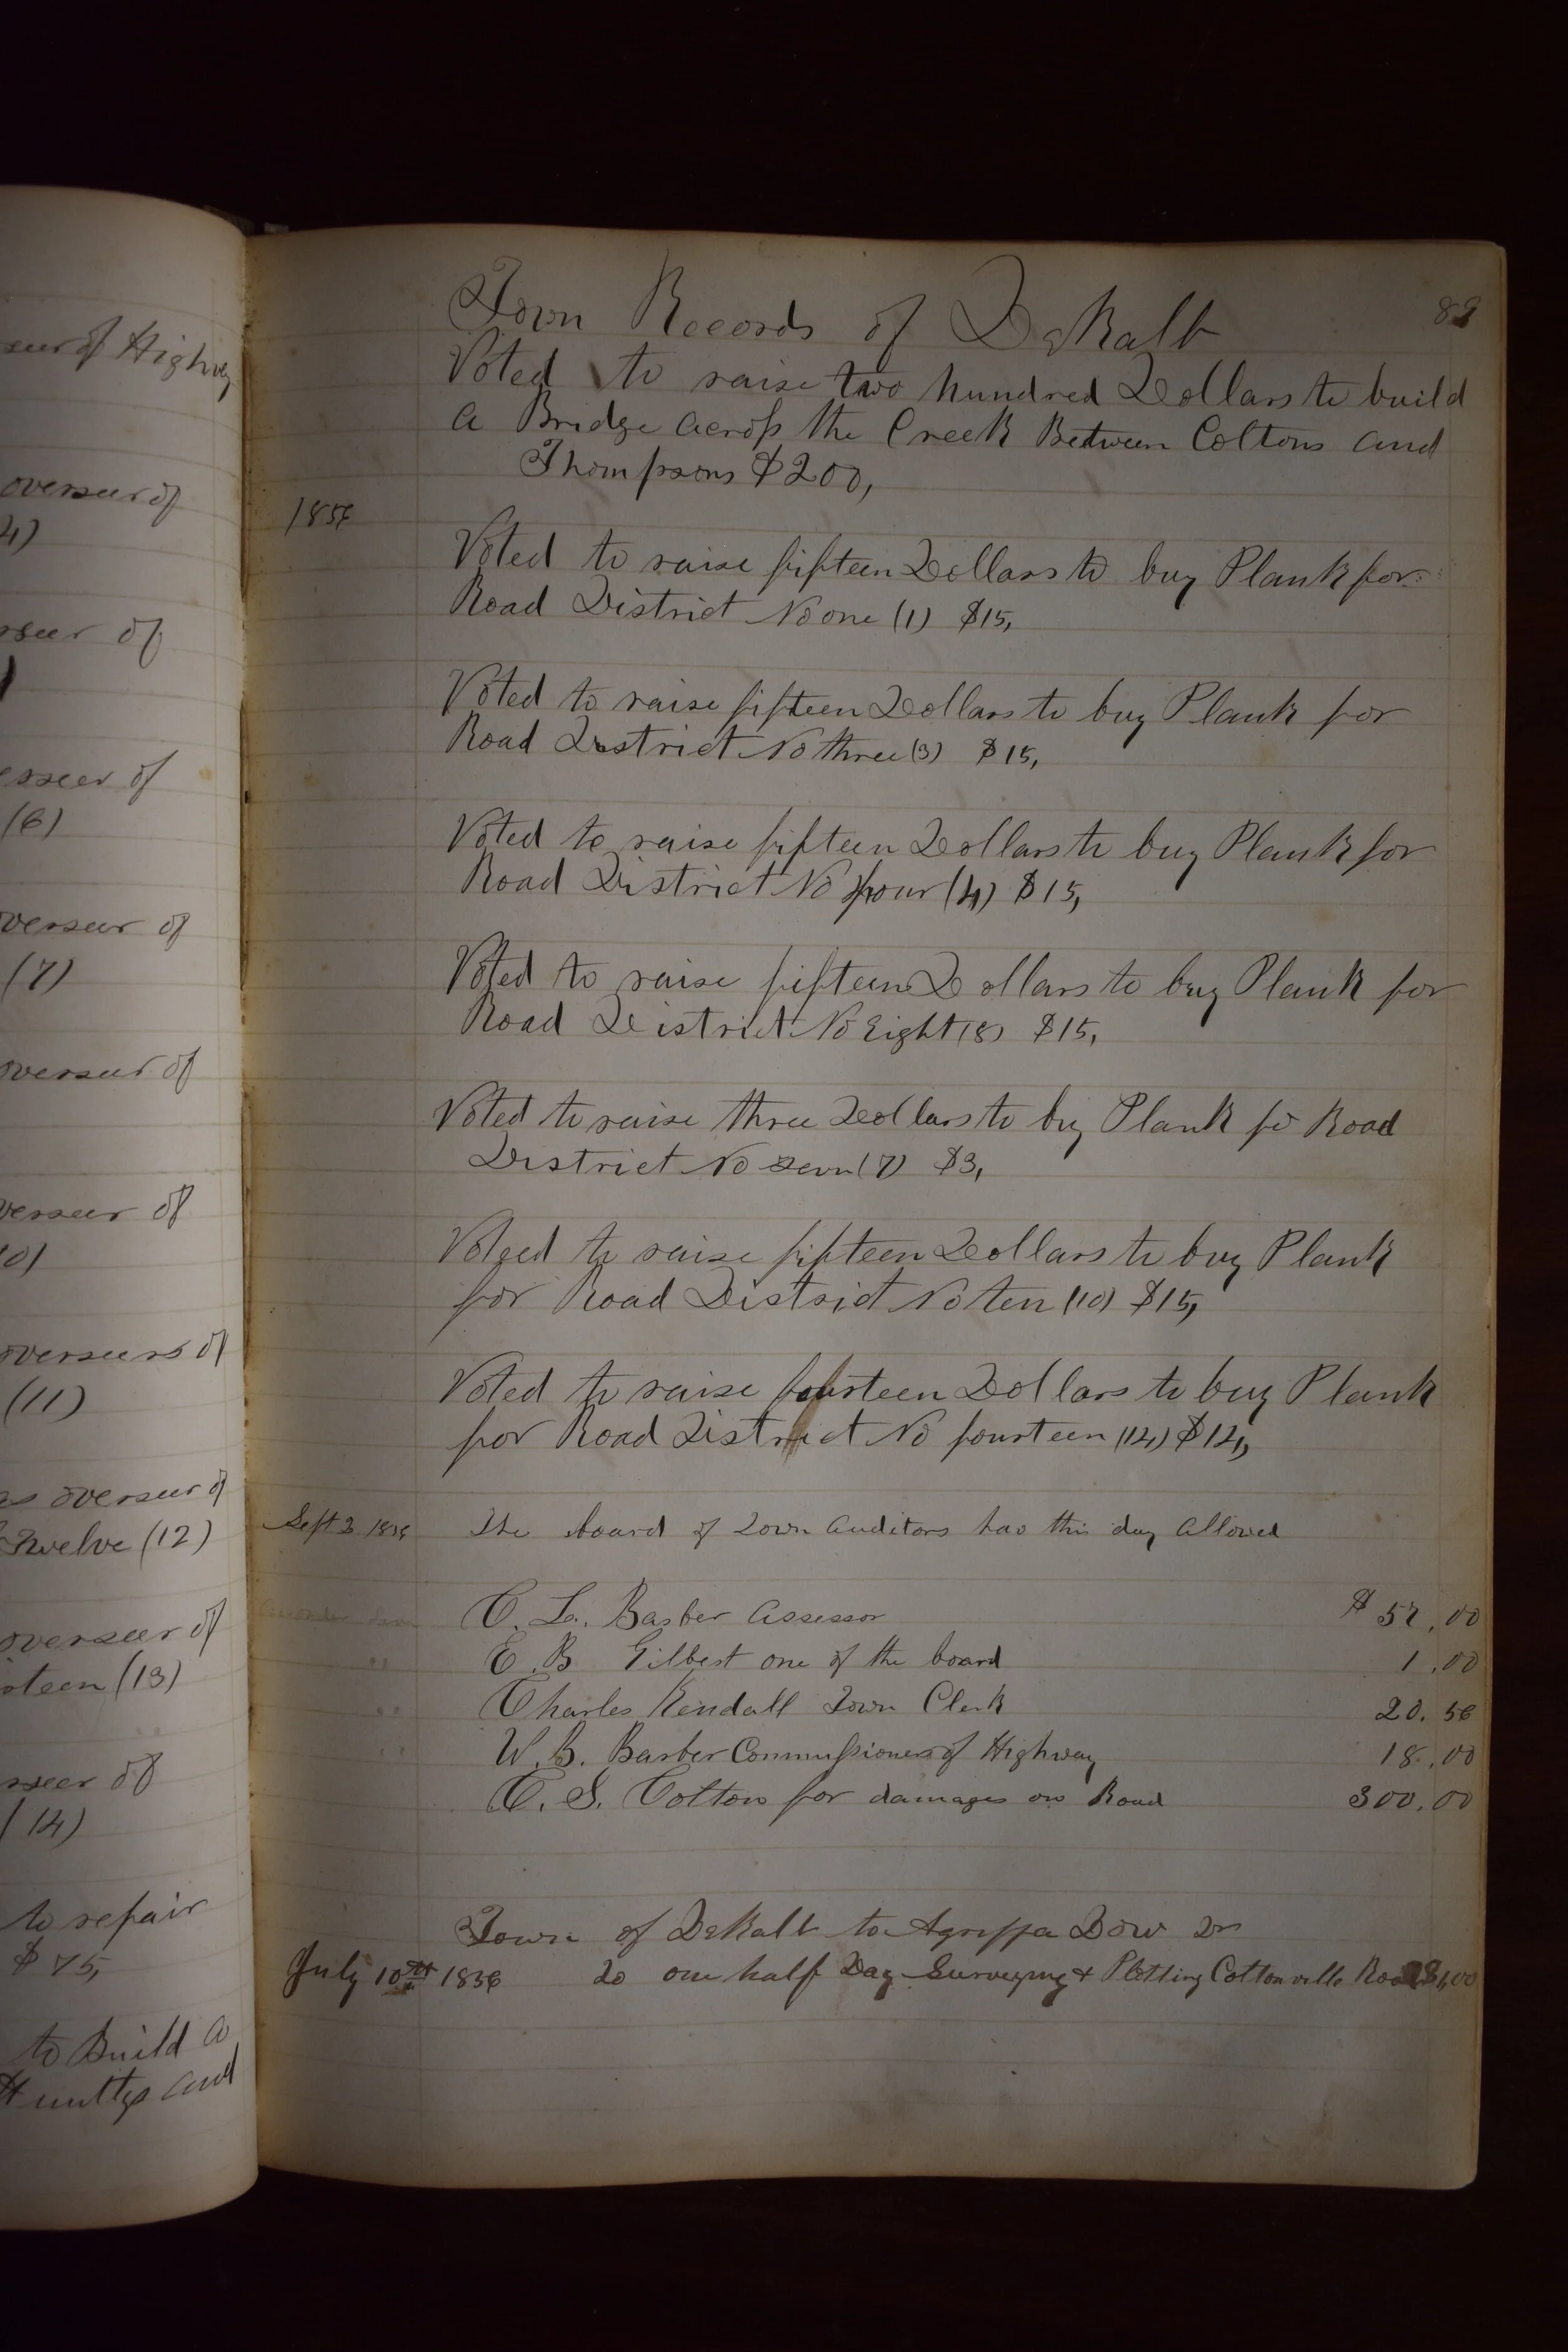 seur of Highwy
overseur of
4)
rseer of
)
esseer of
(6)
overseur of
(7)
overseur of
verseer of
10)
overseers of
(11)
as overseer of
Twelve (12)
overseer of
rteen (13)
sseer of
(14)
to repair
$75,
to Build a
and
89
Town Records of DeKalb
Voted to raise two hundred Dollars to build
a Bridge across the Creek Between Coltons and
Thompsons $200,
1856
Voted to raise fifteen Dollars to buy Plank for
Road District No one (1) $15,
Voted to raise fifteen Dollars to buy Plank for
Road District No three (3) $15,
Voted to raise fifteen Dollars to buy Plank for
Road District No four (4) $15,
Voted to raise fifteen Dollars to buy Plank for
Road District No Eight (8) $15,
Voted to raise three Dollars to buy Plank fo Road
District No sevn (7) $3,
Voted to raise fifteen Dollars to buy Plank
for Road District No ten (10) $15,
Voted to raise fourteen Dollars to buy Plank
for Road District No fourteen (14) $14,
Sept 3 1856 The board of Town Auditors has this day Allowed
C. L. Barber Assessor $ 57.00
" E. B. Gilbert one of the board 1.00
" Charles Kendall Town Clerk 20.56
" W. B. Barber Commissioner of Highway 18.00
C. S. Cotton for damages on Road 300.00
Town of DeKalb to Agrippa Dow Dr
July 10th 1856 To one half Day Surveying & Plotting Cottonville Road $1,00